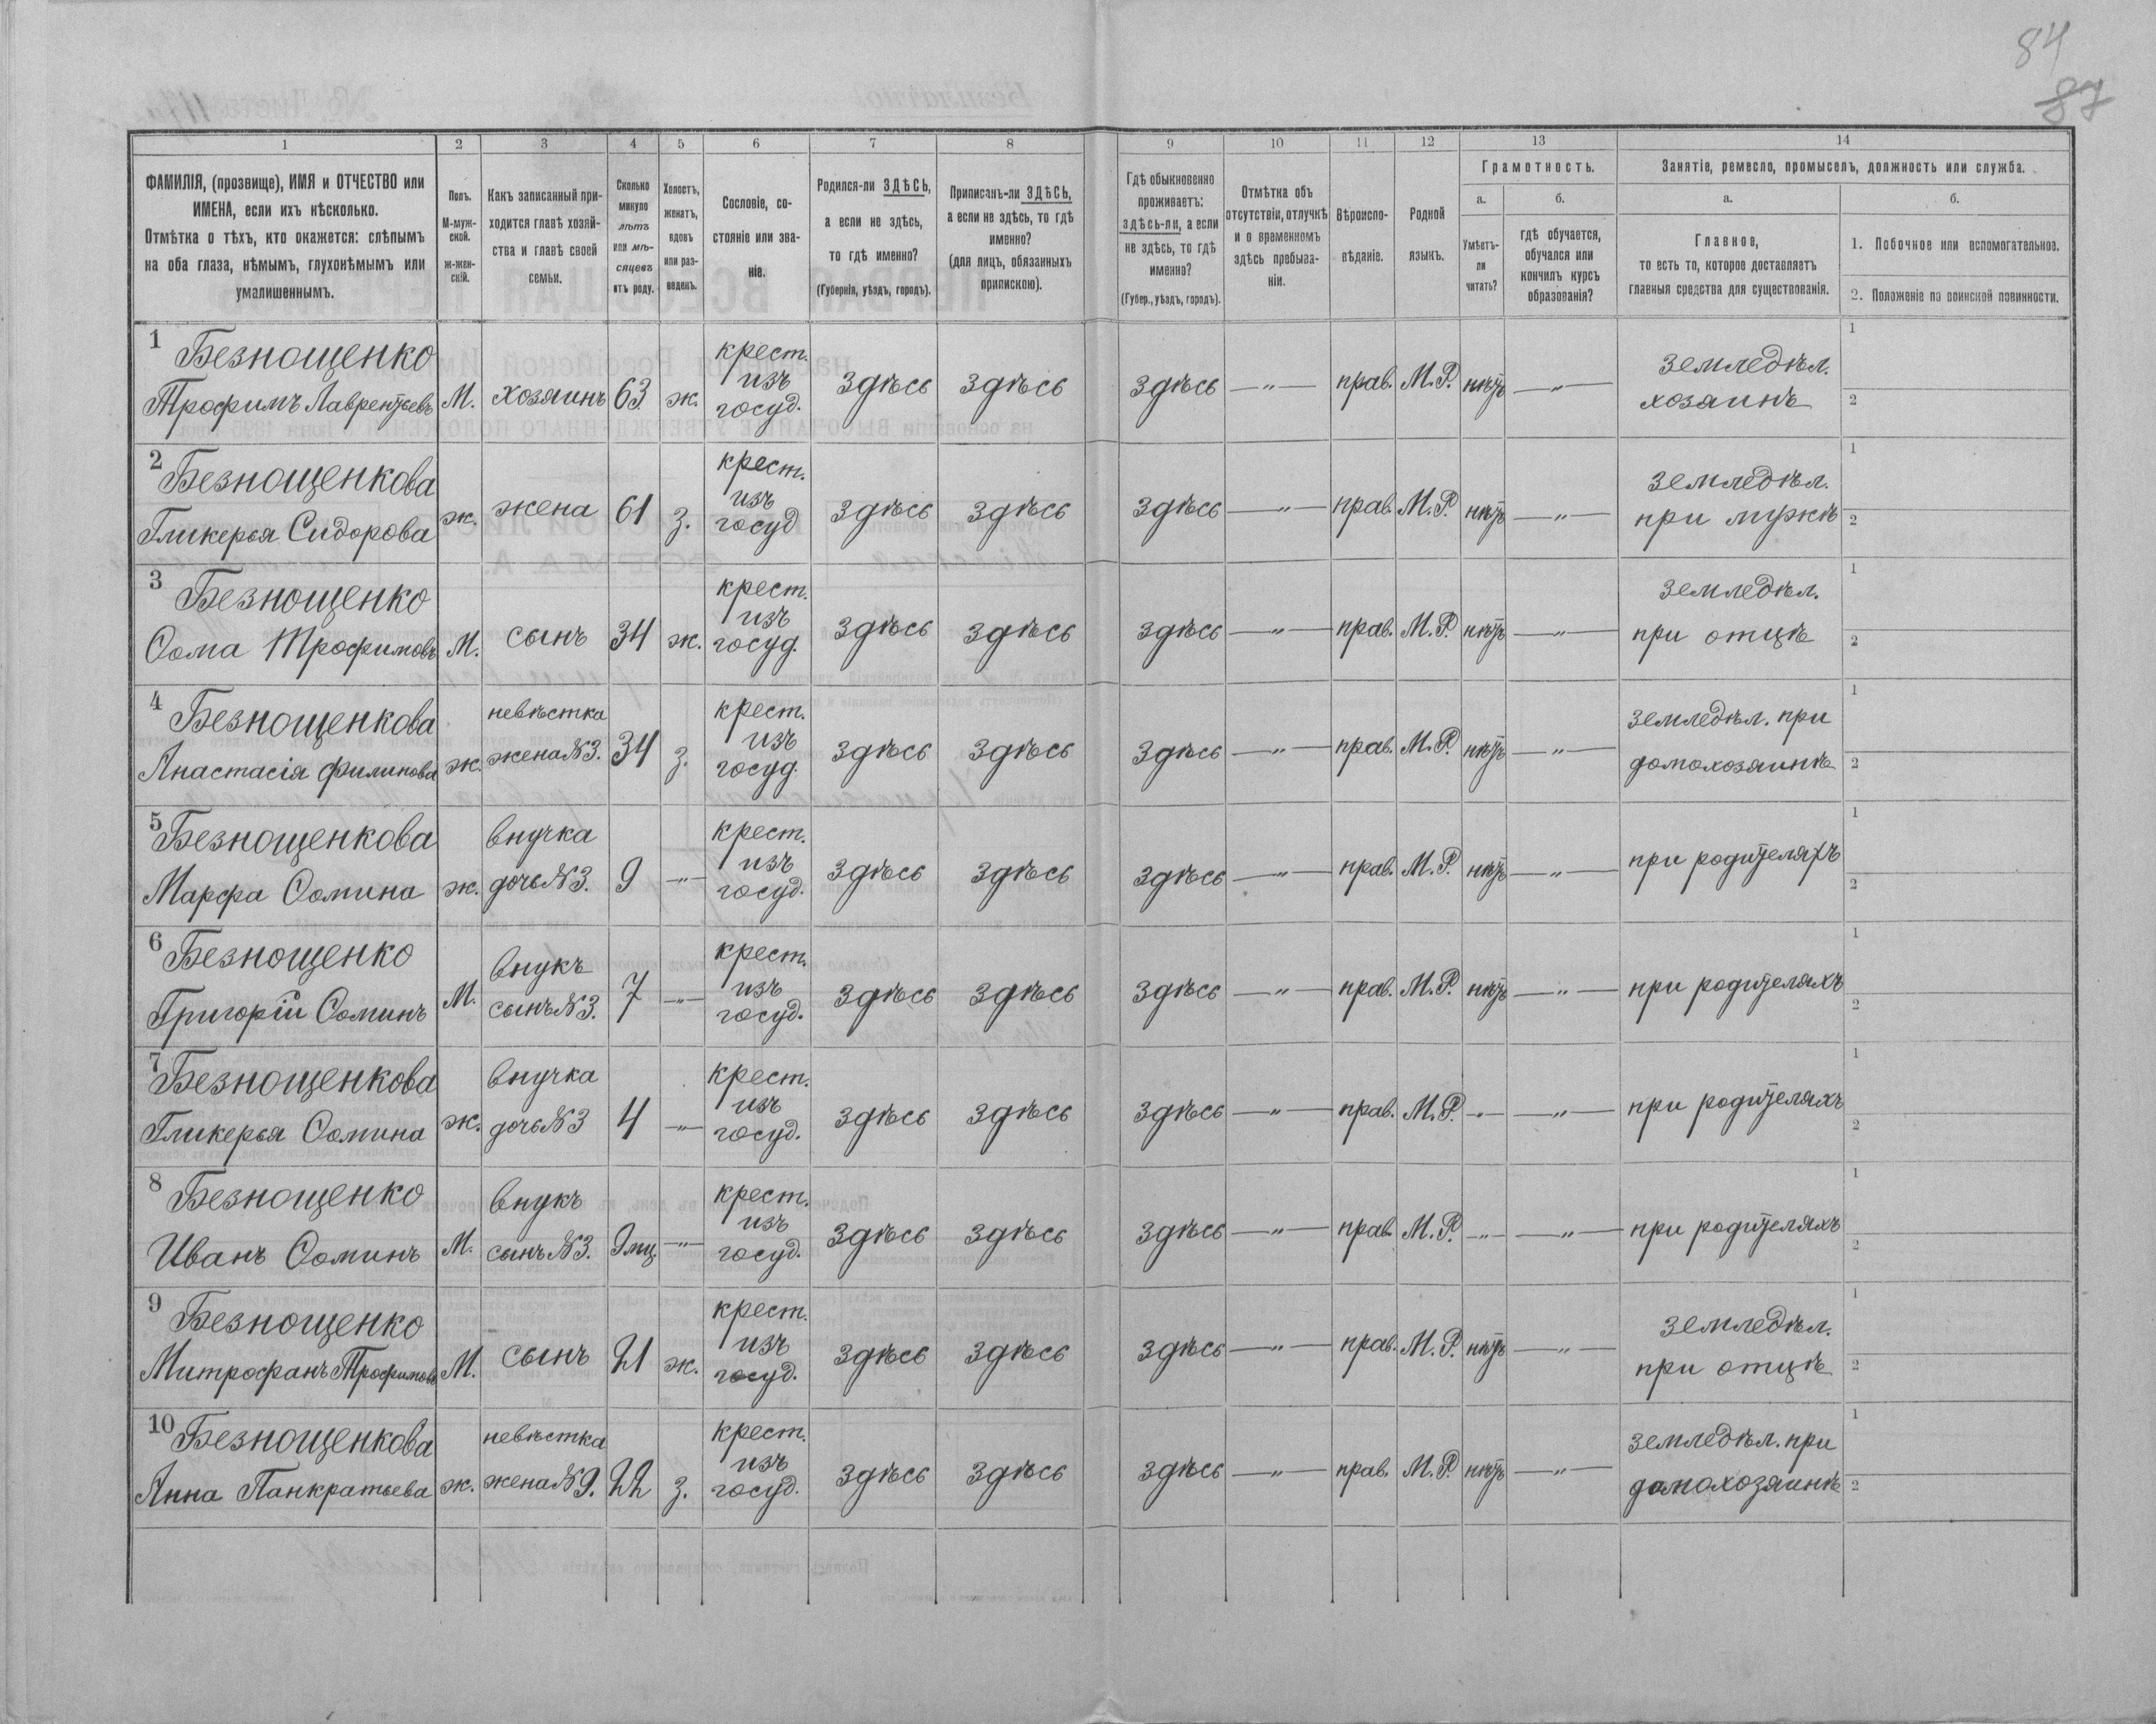 84
87
1
2
3
4
5
6
7
8
9
10
11
12
13
14
ФАМИЛІЯ, (прозвище), ИМЯ и ОТЧЕСТВО или
ИМЕНА, если ихъ нѣсколько.
Отмѣтка о тѣхъ, кто окажется: слѣпымъ
на оба глаза, нѣмымъ, глухонѣмымъ или
умалишеннымъ.
Полъ.
М-муж-
ской.
ж-жен-
скій.
Какъ записанный при-
ходится главѣ хозяй-
ства и главѣ своей
семьи.
Сколько
минуло
лѣтъ
или мѣ-
сяцевъ
отъ роду.
Холостъ,
женатъ,
вдовъ
или раз-
веденъ.
Сословіе, со-
стояніе или зва-
ніе.
Родился-ли ЗДѢСЬ,
а если не здѣсь,
то гдѣ именно?
(Губернія, уѣздъ, городъ).
Приписанъ-ли ЗДѢСЬ,
а если не здѣсь, то гдѣ
именно?
(для лицъ, обязанныхъ
припискою).
Гдѣ обыкновенно
проживаетъ:
здѣсь-ли, а если
не здѣсь, то гдѣ
именно?
(Губер., уѣздъ, городъ).
Отмѣтка объ
отсутствіи, отлучкѣ
и о временномъ
здѣсь пребыва-
ніи.
Вѣроиспо-
вѣданіе.
Родной
языкъ.
Грамотность.
а.
Умѣетъ-
ли
читать?
б.
гдѣ обучается,
обучался или
кончилъ курсъ
образованія?
Занятіе, ремесло, промыселъ, должность или служба.
а.
Главное,
то есть то, которое доставляетъ
главныя средства для существованія.
б.
1. Побочное или вспомогательное.
2. Положеніе по воинской повинности.
1 Безнощенко
Трофимъ Лаврентьевъ М. хозяинъ 63 ж. крест.
изъ
госуд. здѣсь здѣсь здѣсь —"— прав. М.Р. нѣтъ —"— земледѣл.
хозяинъ 1
2
2 Безнощенкова
Гликерья Сидорова ж. жена 61 з. крест.
изъ
госуд здѣсь здѣсь здѣсь —"— прав. М.Р. нѣтъ —"— земледѣл.
при мужѣ 1
2
3 Безнощенко
Ѳома Трофимовъ М. сынъ 34 ж. крест.
изъ
госуд. здѣсь здѣсь здѣсь —"— прав. М.Р. нѣтъ —"— земледѣл.
при отцѣ 1
2
4 Безнощенкова
Анастасія Филипова ж. невѣстка
жена №3. 34 з. крест.
изъ
госуд. здѣсь здѣсь здѣсь —"— прав. М.Р. нѣтъ —"— земледѣл. при
домохозяинѣ 1
2
5 Безнощенкова
Марфа Ѳомина ж. внучка
дочь №3. 9 —"— крест.
изъ
госуд. здѣсь здѣсь здѣсь —"— прав. М.Р. нѣтъ —"— при родителяхъ 1
2
6 Безнощенко
Григорій Ѳоминъ М. внукъ
сынъ №3. 7 —"— крест.
изъ
госуд. здѣсь здѣсь здѣсь —"— прав. М.Р. нѣтъ —"— при родителяхъ 1
2
7 Безнощенкова
Гликерья Ѳомина ж. внучка
дочь №3 4 —"— крест.
изъ
госуд. здѣсь здѣсь здѣсь —"— прав. М.Р. —"— —"— при родителяхъ 1
2
8 Безнощенко
Иванъ Ѳоминъ М. внукъ
сынъ №3. 9 мц. —"— крест.
изъ
госуд. здѣсь здѣсь здѣсь —"— прав. М.Р. —"— —"— при родителяхъ 1
2
9 Безнощенко
Митрофанъ Трофимовъ М. сынъ 21 ж. крест.
изъ
госуд. здѣсь здѣсь здѣсь —"— прав. М.Р. нѣтъ —"— земледѣл.
при отцѣ 1
2
10 Безнощенкова
Анна Панкратьева ж. невѣстка
жена №9. 22 з. крест.
изъ
госуд. здѣсь здѣсь здѣсь —"— прав. М.Р. нѣтъ —"— земледѣл. при
домохозяинѣ 1
2